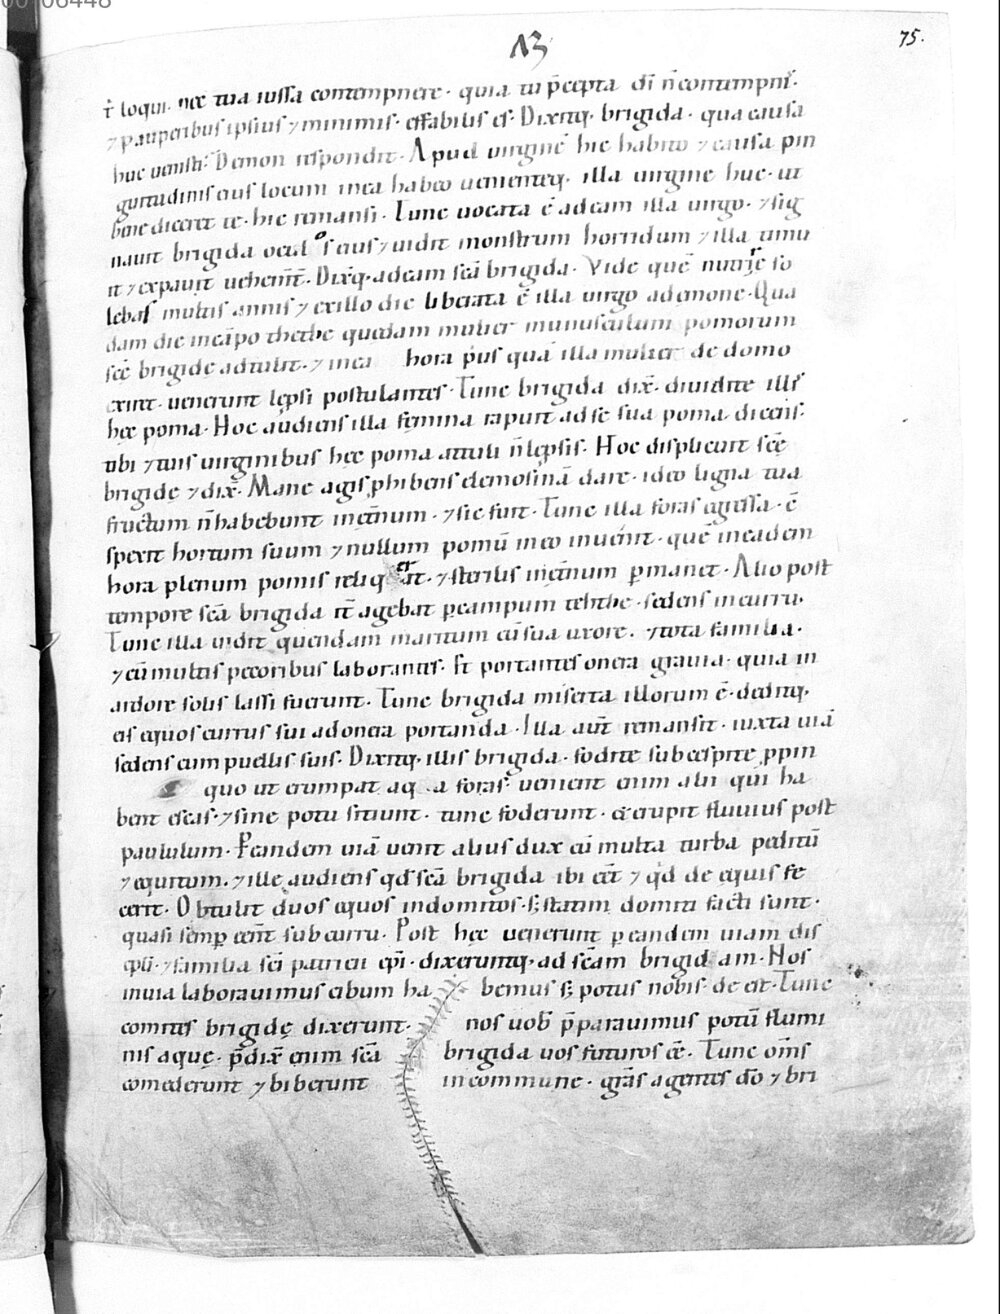 00106448
13
75.
t̄ loqui. nec tua iussa contempnere. quia tu p̄cepta dī n̄ contempnis.
⁊ pauperibus ipsius ⁊ minimis. effabilis es. Dixitq; brigida. qua causa
huc uenisti. Demon respondit. Apud uirginē hic habito ⁊ causa pin
guitudinis eius locum in ea habeo uenienteq; illa uirgine huc. ut
benediceret te. hic remansi. Tunc uocata ē ad eam illa uirgo. ⁊ sig
nauit brigida oculos eius ⁊ uidit monstrum horridum ⁊ illa timu
it ⁊ expauit uehem̄t. Dix̄q; ad eam sc̄a brigida. Vide quē nutrire so
lebas multis annis ⁊ ex illo die liberata ē illa uirgo a demone. Qua
dam die in cāpo thethe quedam mulier munusculum pomorum
sc̄ę brigidę adtulit. ⁊ in ea hora p̄us quā illa mulier de domo
exiret. uenerunt lepsi postulantes. Tunc brigida dix̄. diuidite illis
hęc poma. Hoc audiens illa femina rapuit ad se sua poma dicens.
tibi ⁊ tuis uirginibus hęc poma attuli n̄ lepsis. Hoc displicuit sc̄ę
brigidę ⁊ dix̄. Mane agis phibens elemosinā dare. ideo ligna tua
fructum n̄ habebunt in et̄num. ⁊ sic fuit. Tunc illa foras egressa. ē
spexit hortum suum ⁊ nullum pomū in eo inuenit. quē in eadem
hora plenum pomis reliq̄rat. ⁊ sterilis in et̄num p̱manet. Alio post
tempore sc̄a brigida it̄ agebat p̱ campum tehthe. sedens in curru.
Tunc illa uidit quendam maritum cū sua uxore. ⁊ tota familia.
⁊ cū multis pecoribus laborantes. st̄ portantes onera grauia. quia in
ardore solis lassi fuerunt. Tunc brigida miserta illorum ē. deditq;
eis equos currus sui ad onera portanda. Illa aūt remansit. iuxta uiā
sedens cum puellis suis. Dixitq; illis brigida. fodite sub cespite ꝓpin
quo ut erumpat aqua foras. uenient enim alii qui ha
bent escas. ⁊ sine potu sitiunt. tunc foderunt. & erupit fluuius post
paululum. P̱ eandem uiā uenit alius dux cū multa turba peditū
⁊ equitum. ⁊ ille audiens qd̄ sc̄a brigida ibi eēt ⁊ qd̄ de equis fe
cerit. Obtulit duos equos indomitos. s; statim domiti facti sunt.
quasi semp̱ eent̄ sub curru. Post hęc uenerunt p̱ eandem uiam dis
cipuli. ⁊ familia sc̄i patricii epī. dixeruntq; ad sc̄am brigidam. Nos
in uia laborauimus cibum habemus s; potus nobis deest. Tunc
comites brigidę dixerunt. nos uob̄ p̄parauimus potū flumi
nis aquę. p̄dix̄ enim sc̄a brigida uos futuros eē. Tunc om̄s
comederunt ⁊ biberunt in commune. gr̄as agentes dō ⁊ bri